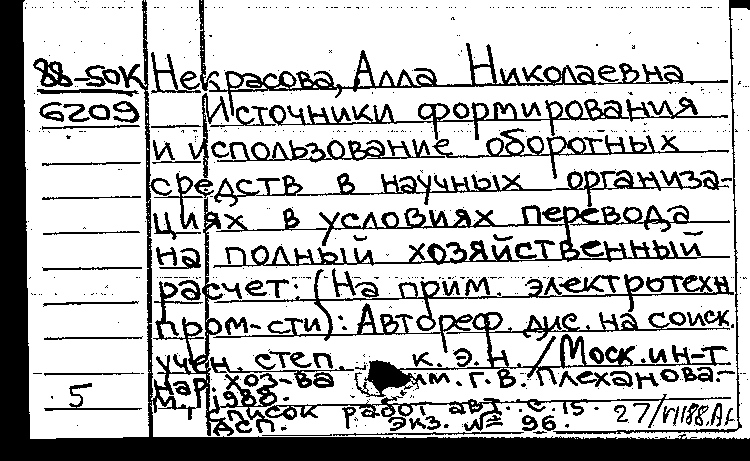 88-50К Некрасова, Алла Николаевна
6209 Источники формирования
и использование оборотных
средств в научных организа-
циях в условиях перевода
на полный хозяйственный
расчет: (На прим. электротехн.
пром-сти): Автореф. дис. на соиск.
учен. степ. к.э.н. / Моск. ин-т
нар. хоз-ва им. Г. В. Плеханова.-
5 М., 1988.
Список работ авт. с. 15.
ДСП. Экз. № 96.